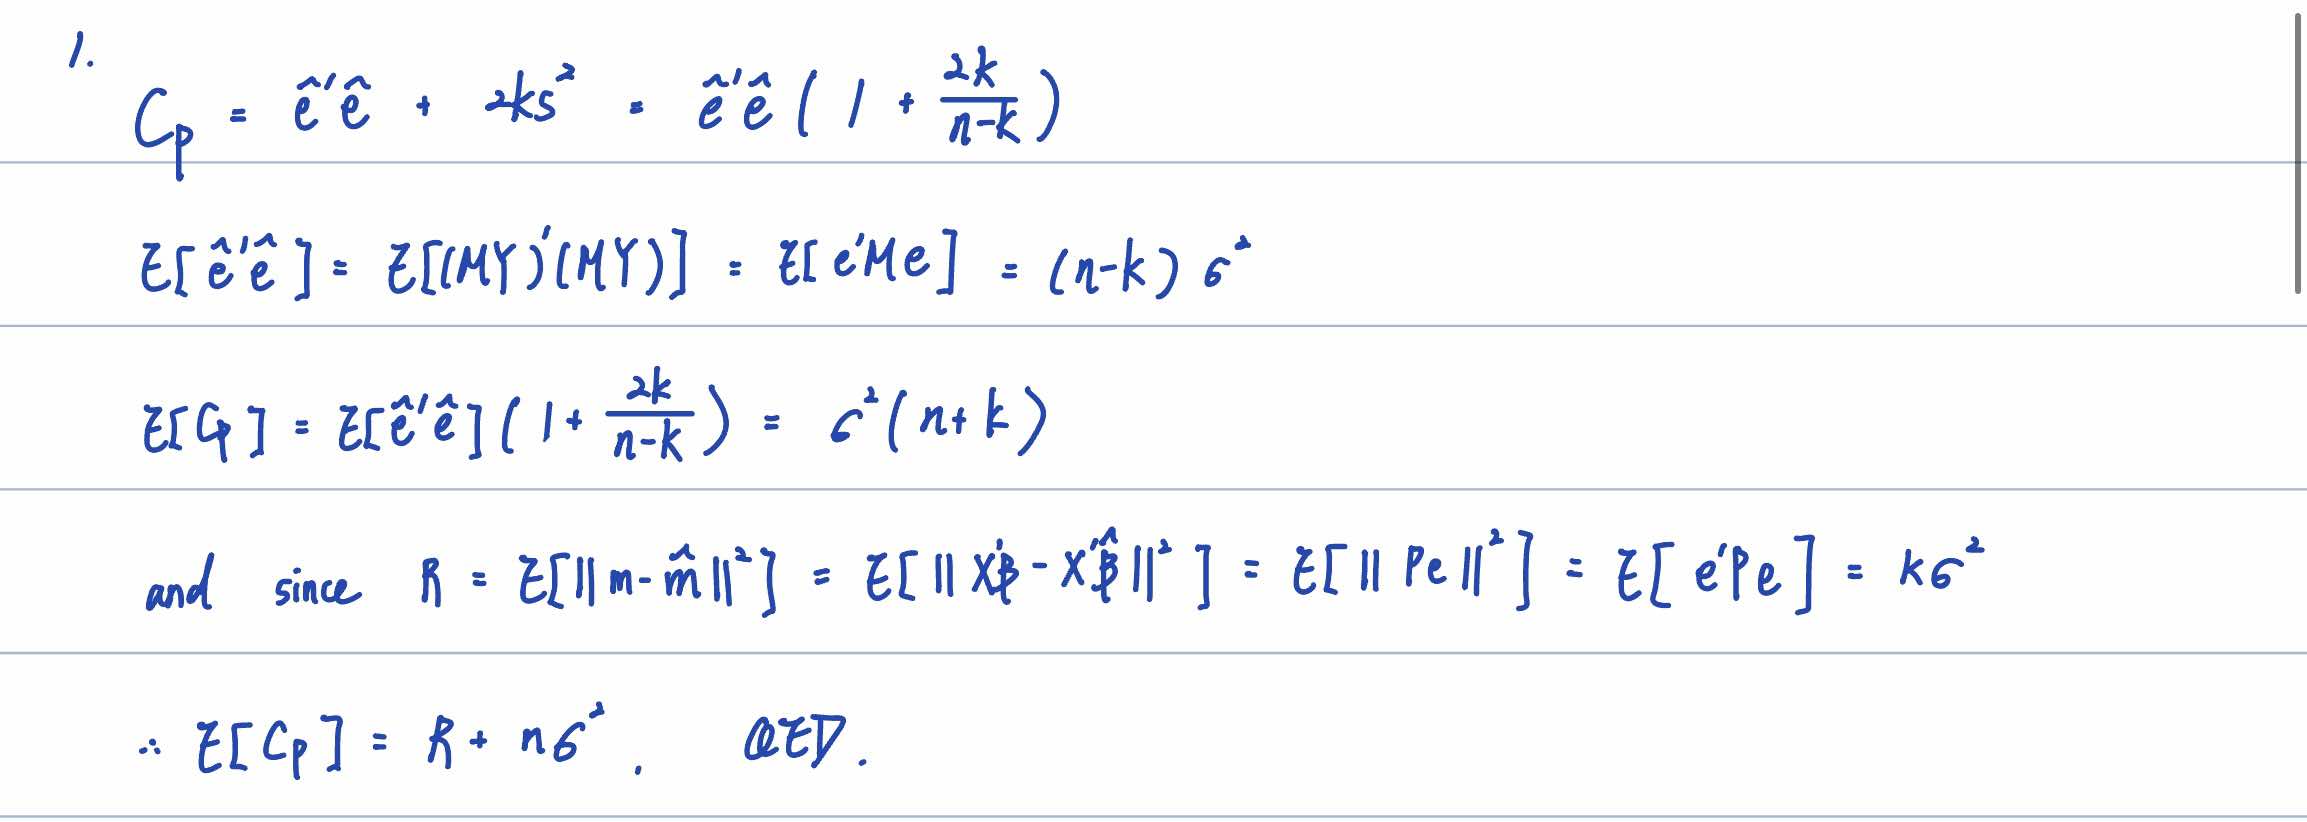 1.
C_p = ê'ê + 2ks² = ê'ê ( 1 + \frac{2k}{n-k} )
E[ê'ê] = E[(MY)'(MY)] = E[e'Me] = (n-k) σ²
E[C_p] = E[ê'ê] ( 1 + \frac{2k}{n-k} ) = σ² ( n + k )
and since R = E[||m - m̂||²] = E[||X'β - X'β̂||²] = E[||Pe||²] = E[e'Pe] = kσ²
∴ E[C_p] = R + nσ². QED.